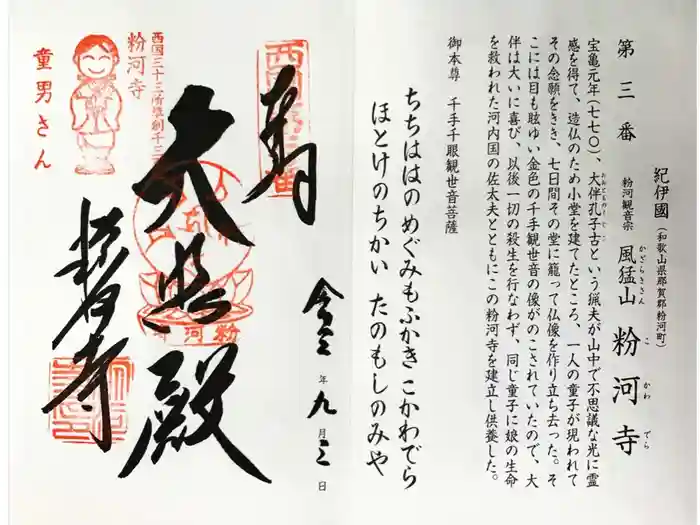 第三番
紀伊國（和歌山県那賀郡粉河町）
粉河観音宗 風猛山 粉河寺
かざらきさん
こ かわ でら
宝亀元年(七七〇)、大伴孔子古という猟夫が山中で不思議な光に霊
おおとものくじこ
感を得て、造仏のため小堂を建てたところ、一人の童子が現われて
その念願をきき、七日間その堂に籠って仏像を作り立ち去った。そ
こには目も眩ゆい金色の千手観世音の像がのこされていたので、大
伴は大いに喜び、以後一切の殺生を行なわず、同じ童子に娘の生命
を救われた河内国の佐太夫とともにこの粉河寺を建立し供養した。
御本尊 千手千眼観世音菩薩
ちちははの めぐみもふかき こかわでら
ほとけのちかい たのもしのみや
奉
令三年九月三日
大悲殿
粉河寺
西国三十三所草創千三
粉河寺
童男さん
粉河寺